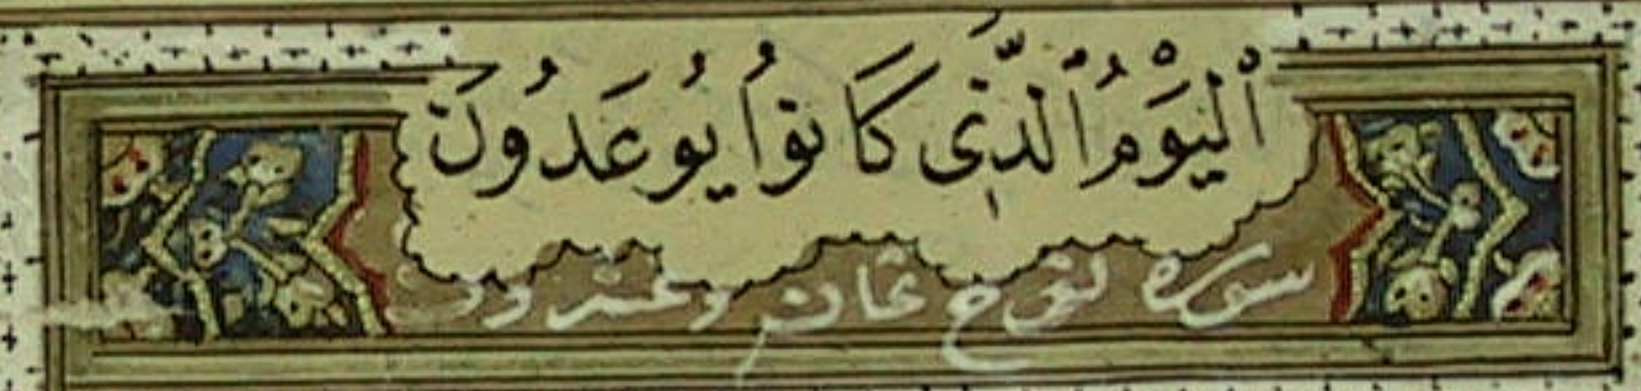 اَلْيَوْمُ الَّذِى كَانُوا يُوعَدُونَ
سورة نوح ثمان وعشرون